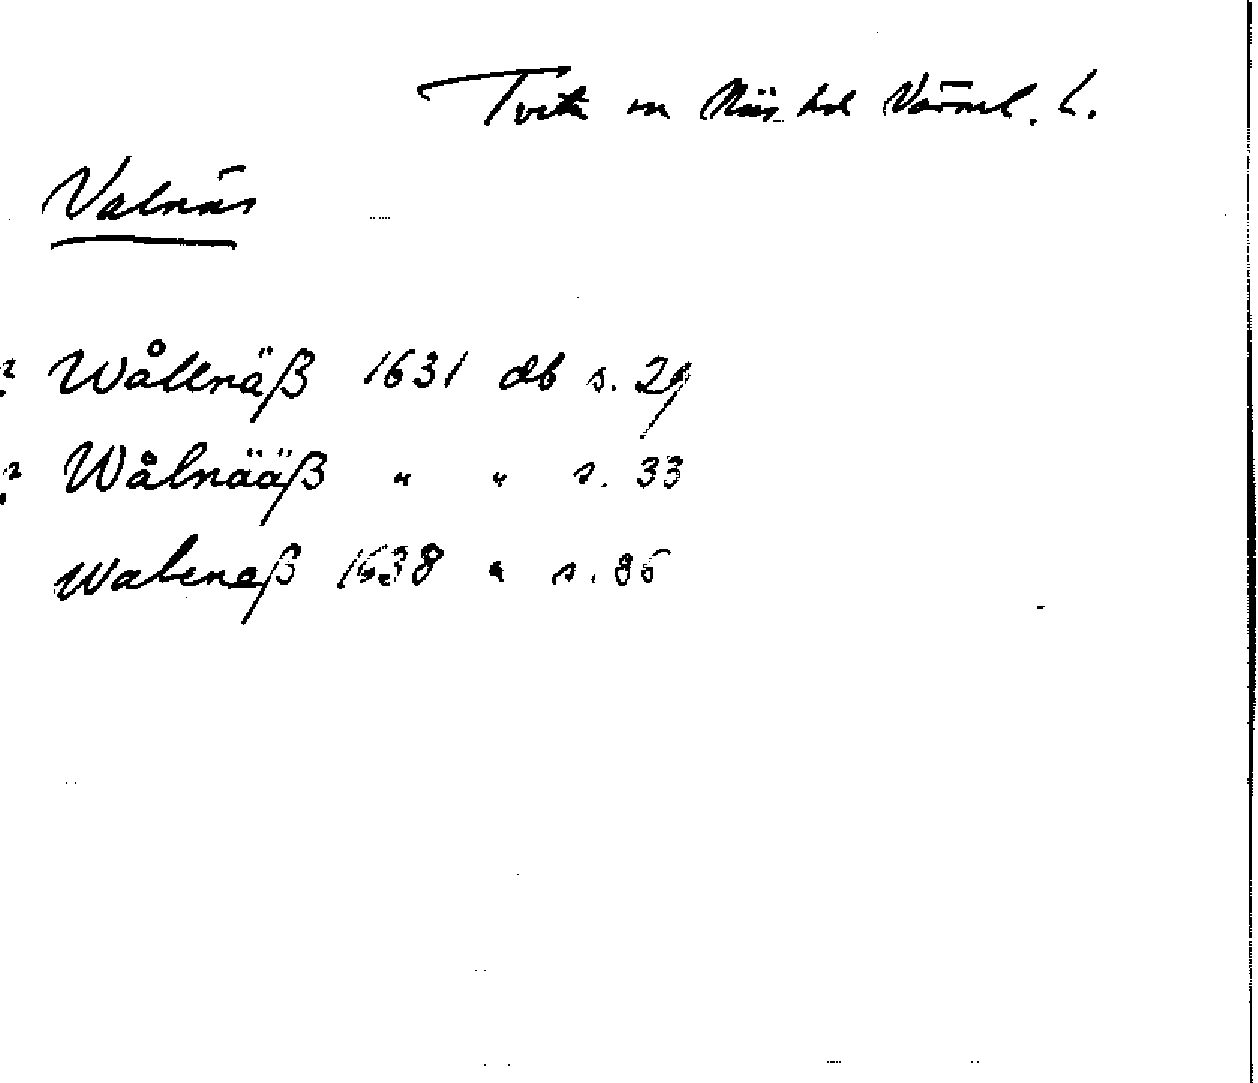 Tveta sn Näs hd Värml. L.
Valnäs
? Wållnäß 1631 db s. 29
? Wålnääß " " s. 33
Walneß 1638 " s. 86